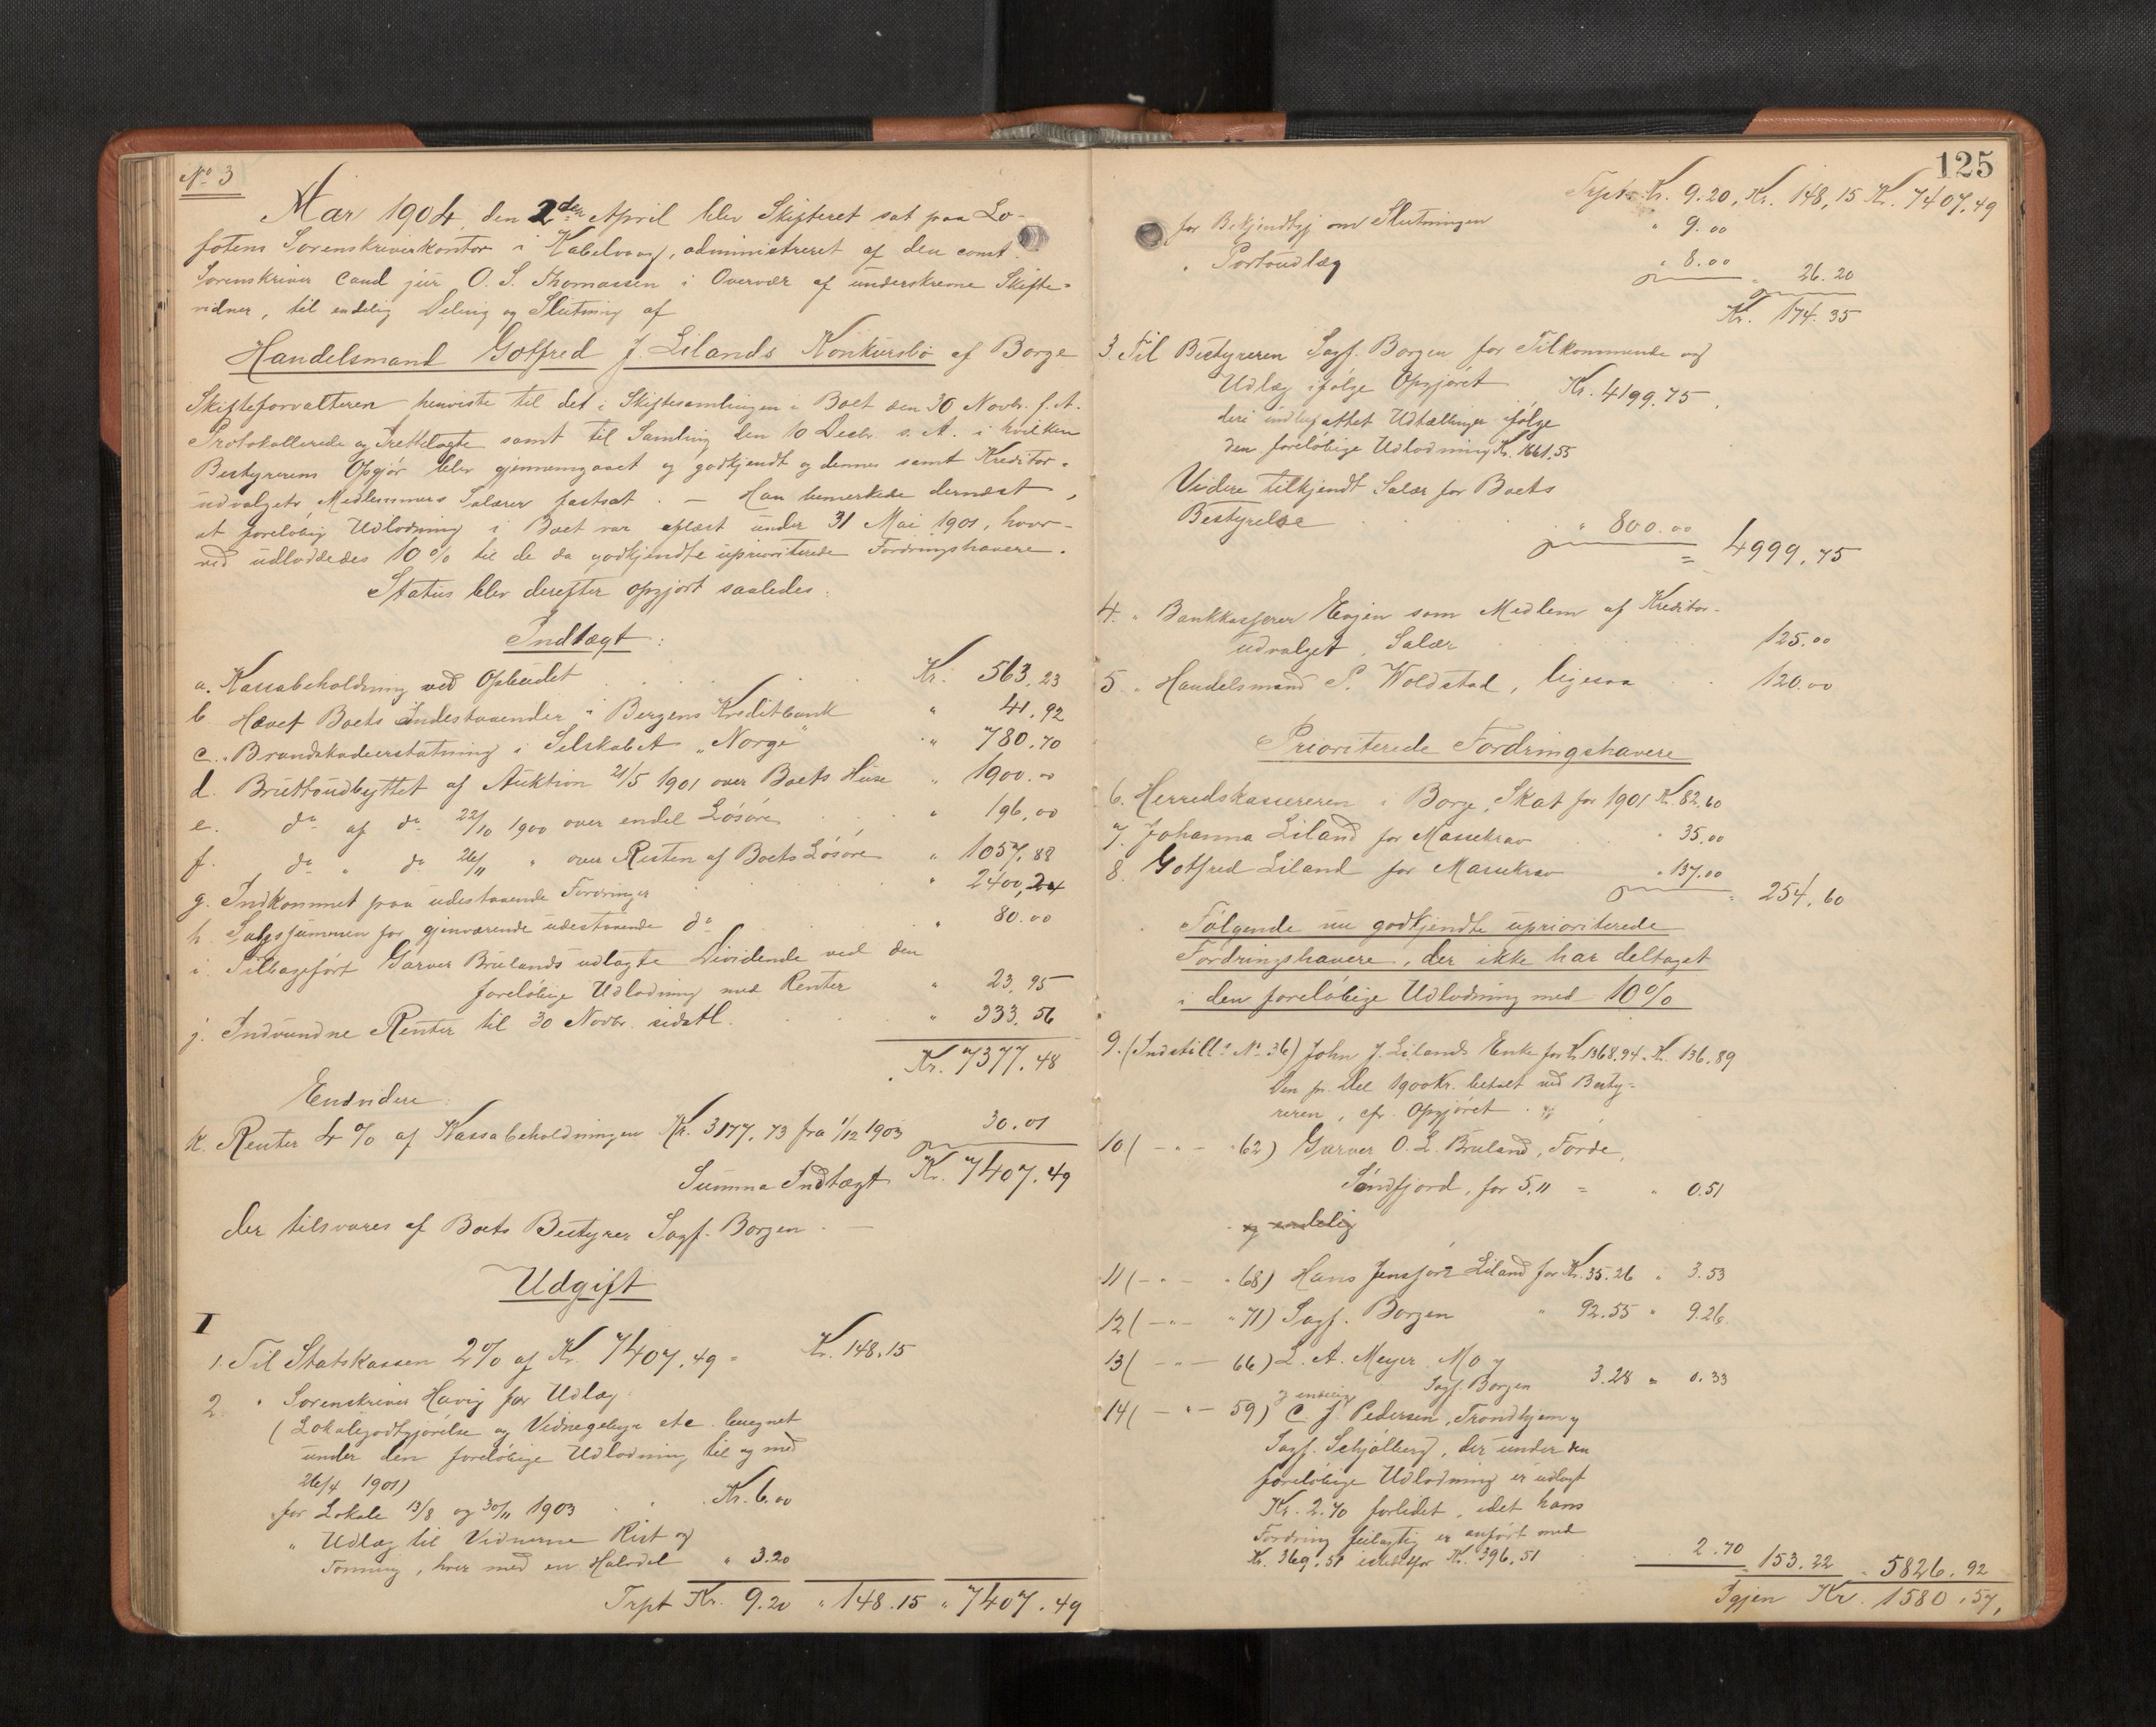 No 3
Aar 1904 den 2den April blev Skifteret sat paa Lo-
fotens Sorenskriverkontor i Kabelvaag, administreret af den const.
Sorenskriver cand jur O. S. Thomassen i Overvær af underskrevne Skifte-
vidner, til endelig Deling og Slutning af
Handelsmand Gotfred J. Lilands Konkursbo af Borge
Skifteforvalteren henviste til det i Skiftesamlingen i Boet den 30 Novbr. f. A.
Protokollerede og Fremlagte samt til Samling den 10 Decbr. s. A. i hvilken
Bestyrerens Opgjør blev gjennemgaaet og godkjendt og dennes samt Kreditor-
udvalgets Medlemmers Salærer fastsat. — Han bemerkede dernæst,
at foreløbig Udlodning i Boet var oplæst under 31 Mai 1901, hvor-
ved udloddedes 10% til de da godkjendte uprioriterede Fordringshavere.
Status blev derefter opgjort saaledes:
Indtægt:
a. Kassabeholdning ved Opbudet Kr. 563.23
b. Hævet Boets Indestaaender i Bergens Kreditbank " 41.92
c. Brandskadeerstatning i Selskabet "Norge" " 780.70
d. Bruttoudbyttet af Auktion 21/5 1901 over Boets Huse " 1900.00
e. do af do 22/10 1900 over endel Løsøre " 196,00
f. do " do 26/11 " over Resten af Boets Løsøre " 1057.88
g. Indkommet paa udestaaende Fordringer " 2400,24
h. Salgssummen for gjenværende udestaaende do " 80.00
i. Tilbageført Garver Brulands udlagte Dividende ved den
foreløbige Udlodning med Renter " 23.95
j. Indvundne Renter til 30 Novbr. sidstl. " 333.56
Kr. 7377.48
Endvidere:
k. Renter 4% af Kassabeholdningen Kr. 3177.73 fra 1/12 1903 30.01
Summa Indtægt Kr. 7407.49
der tilsvares af Boets Bestyrer Sagf. Borgen. —
Udgift
I
1. Til Statskassen 2% af Kr. 7407.49 = Kr. 148.15
2. " Sorenskriver Havig for Udlæg:
(Lokalegodtgjørelse og Vidnegebyr etc. beregnet
under den foreløbige Udlodning til og med
26/4 1901)
for Lokale 13/8 og 30/11 1903 Kr. 6.00
" Udlæg til Vidnerne Rist og
Tonning, hver med en Halvdel " 3.20
Trpt Kr. 9.20 " 148.15 " 7407.49
125
Trpt. Kr. 9.20, Kr. 148,15 Kr. 7407.49
for Bekjendtgj om Slutningen " 9.00
" Portoudlæg " 8.00 " 26.20
Kr. 174.35
3. Til Bestyreren Sagf. Borgen for Tilkommende og
Udlæg ifølge Opgjøret Kr. 4199.75
deri indbefattet Udtællinger ifølge
den foreløbige Udlodning Kr. 1661.55
Videre tilkjendt Salær for Boets
Bestyrelse " 800.00 = 4999.75
4. " Bankkasserer Evjen som Medlem af Kreditor-
udvalget, Salær 125.00
5. " Handelsmand S. Woldstad, ligesaa 120.00
Prioriterede Fordringshavere
6. Herredskassereren i Borge, Skat for 1901 Kr. 82.60
7. Johanna Liland for Massekrav " 35.00
8. Gotfred Liland for Massekrav " 137.00 " 254.60
Følgende nu godkjendte uprioriterede
Fordringshavere, der ikke har deltaget
i den foreløbige Udlodning med 10%
9. (Indstills No 36) John J. Lilands Enke for Kr. 1368.94 = Kr. 136.89
Den pr. Del 1900 Kr. betalt ved Besty-
reren, cfr. Opgjøret.
10 ( — " — " 62) Garver O. L. Bruland, Førde,
Søndfjord, for 5.11 = " 0.51
og endelig
11 ( — " — " 68) Hans Jensson Liland for Kr. 35.26 " 3.53
12 ( — " — " 71) Sagf. Borgen " 92.55 " 9.26
13 ( — " — 66) L. A. Meyer Mo v/
Sagf. Borgen 3.28 " 0.33
og endelig
14 ( — " — 59) C. J. Pedersen, Trondhjem v/
Sagf. Schjølberg, der under den
foreløbige Udlodning er udlagt
Kr. 2.70 forlidet, idet hans
Fordring feilagtig er anført med
Kr. 369.51 istedetfor Kr. 396.51 2.70 " 153.22 " 5826.92
Igjen Kr. 1580.57,